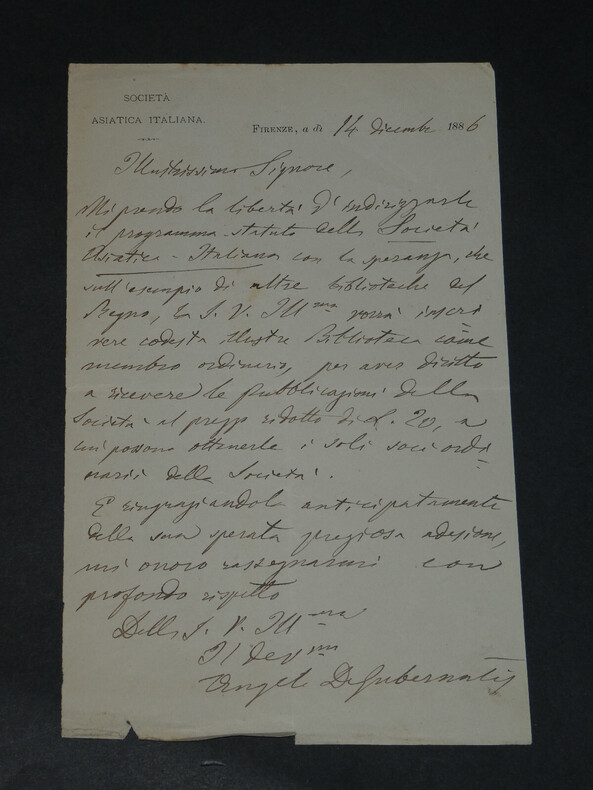 SOCIETÀ
ASIATICA ITALIANA.
FIRENZE, a dì 14 dicembre 1886
Illustrissimo Signore,
Mi prendo la libertà d'indirizzarle
il programma-statuto della Società
Asiatica-Italiana con la speranza, che
sull'esempio di altre biblioteche del
Regno, la S. V. Ill.ma vorrà inscri
vere codesta illustre Biblioteca come
membro ordinario, per aver diritto
a ricevere le pubblicazioni della
Società al prezzo ridotto di L. 20, a
cui possono ottenerle i soli soci ordi
narii della Società.
E ringraziandola anticipatamente
della sua sperata preziosa adesione,
mi onoro rassegnarmi con
profondo rispetto
Della S. V. Ill.ma
Il dev.mo
Angelo DeGubernatis